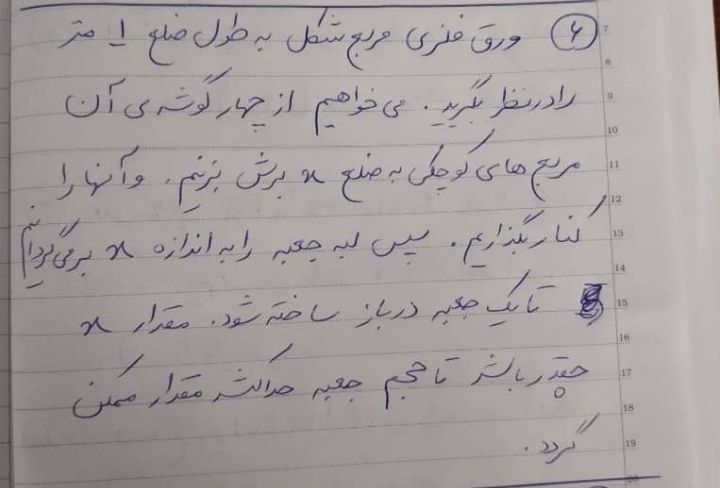 ۶ ورق فلزی مربع شکل به طول ضلع 1 متر
را در نظر بگیرید. می‌خواهیم از چهار گوشه‌ی آن
مربع‌های کوچکی به ضلع x برش بزنیم. و آنها را
کنار بگذاریم. سپس لبه جعبه را به اندازه x برمی‌گردانیم
تا یک جعبه درباز ساخته شود. مقدار x
چقدر باشد تا حجم جعبه حداکثر مقدار ممکن
گردد.
7
8
9
10
11
12
13
14
15
16
17
18
19
20